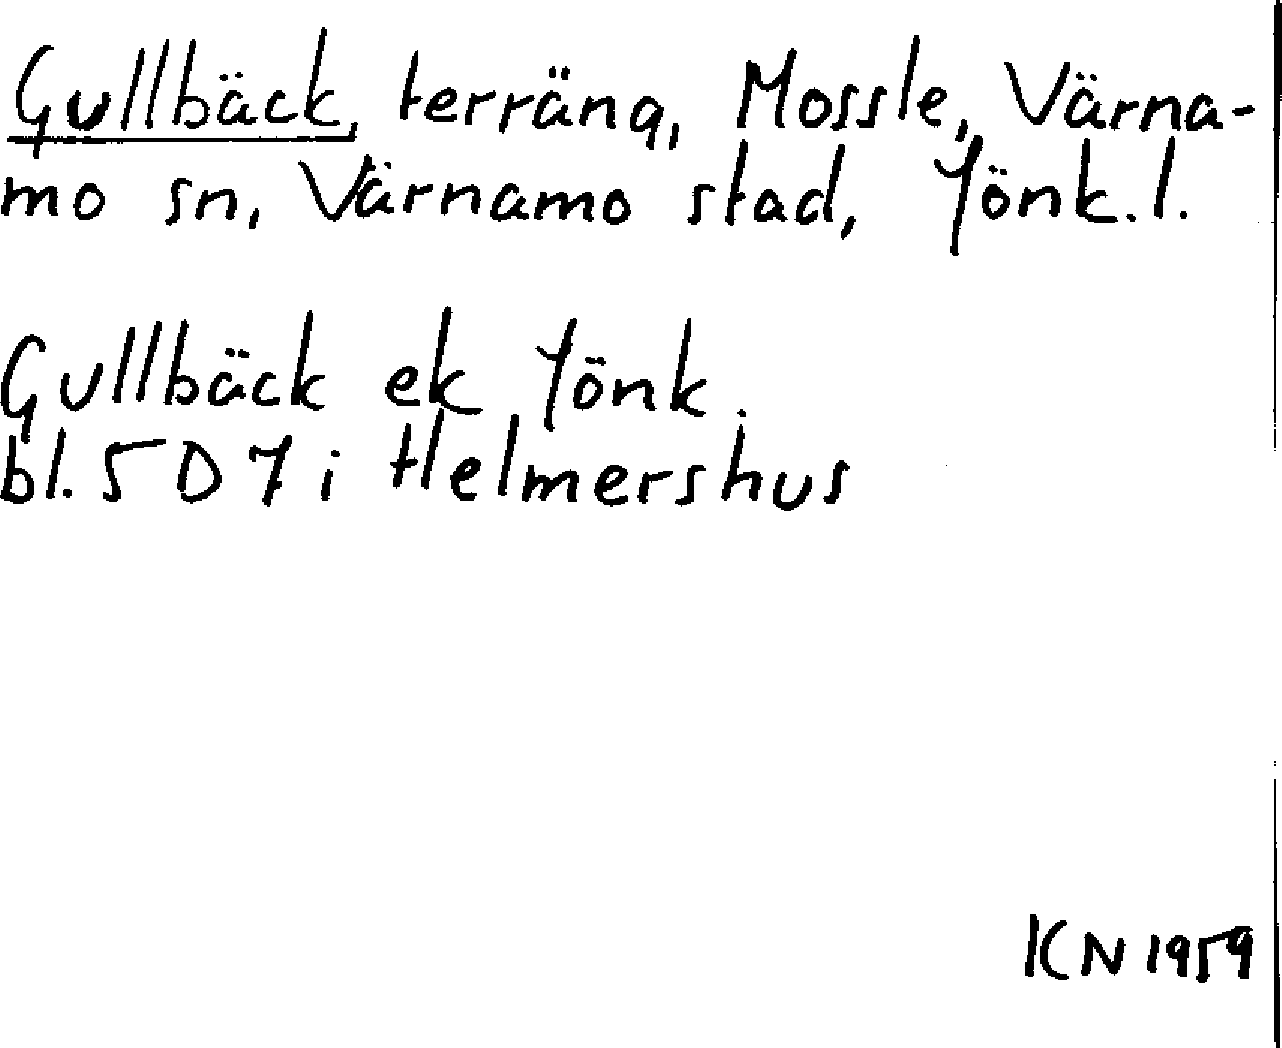 Gullbäck, terräng, Mossle, Värna-
mo sn, Värnamo stad, Jönk. l.
Gullbäck ek Jönk.
bl. 5 D 7 i Helmershus
KN 1959